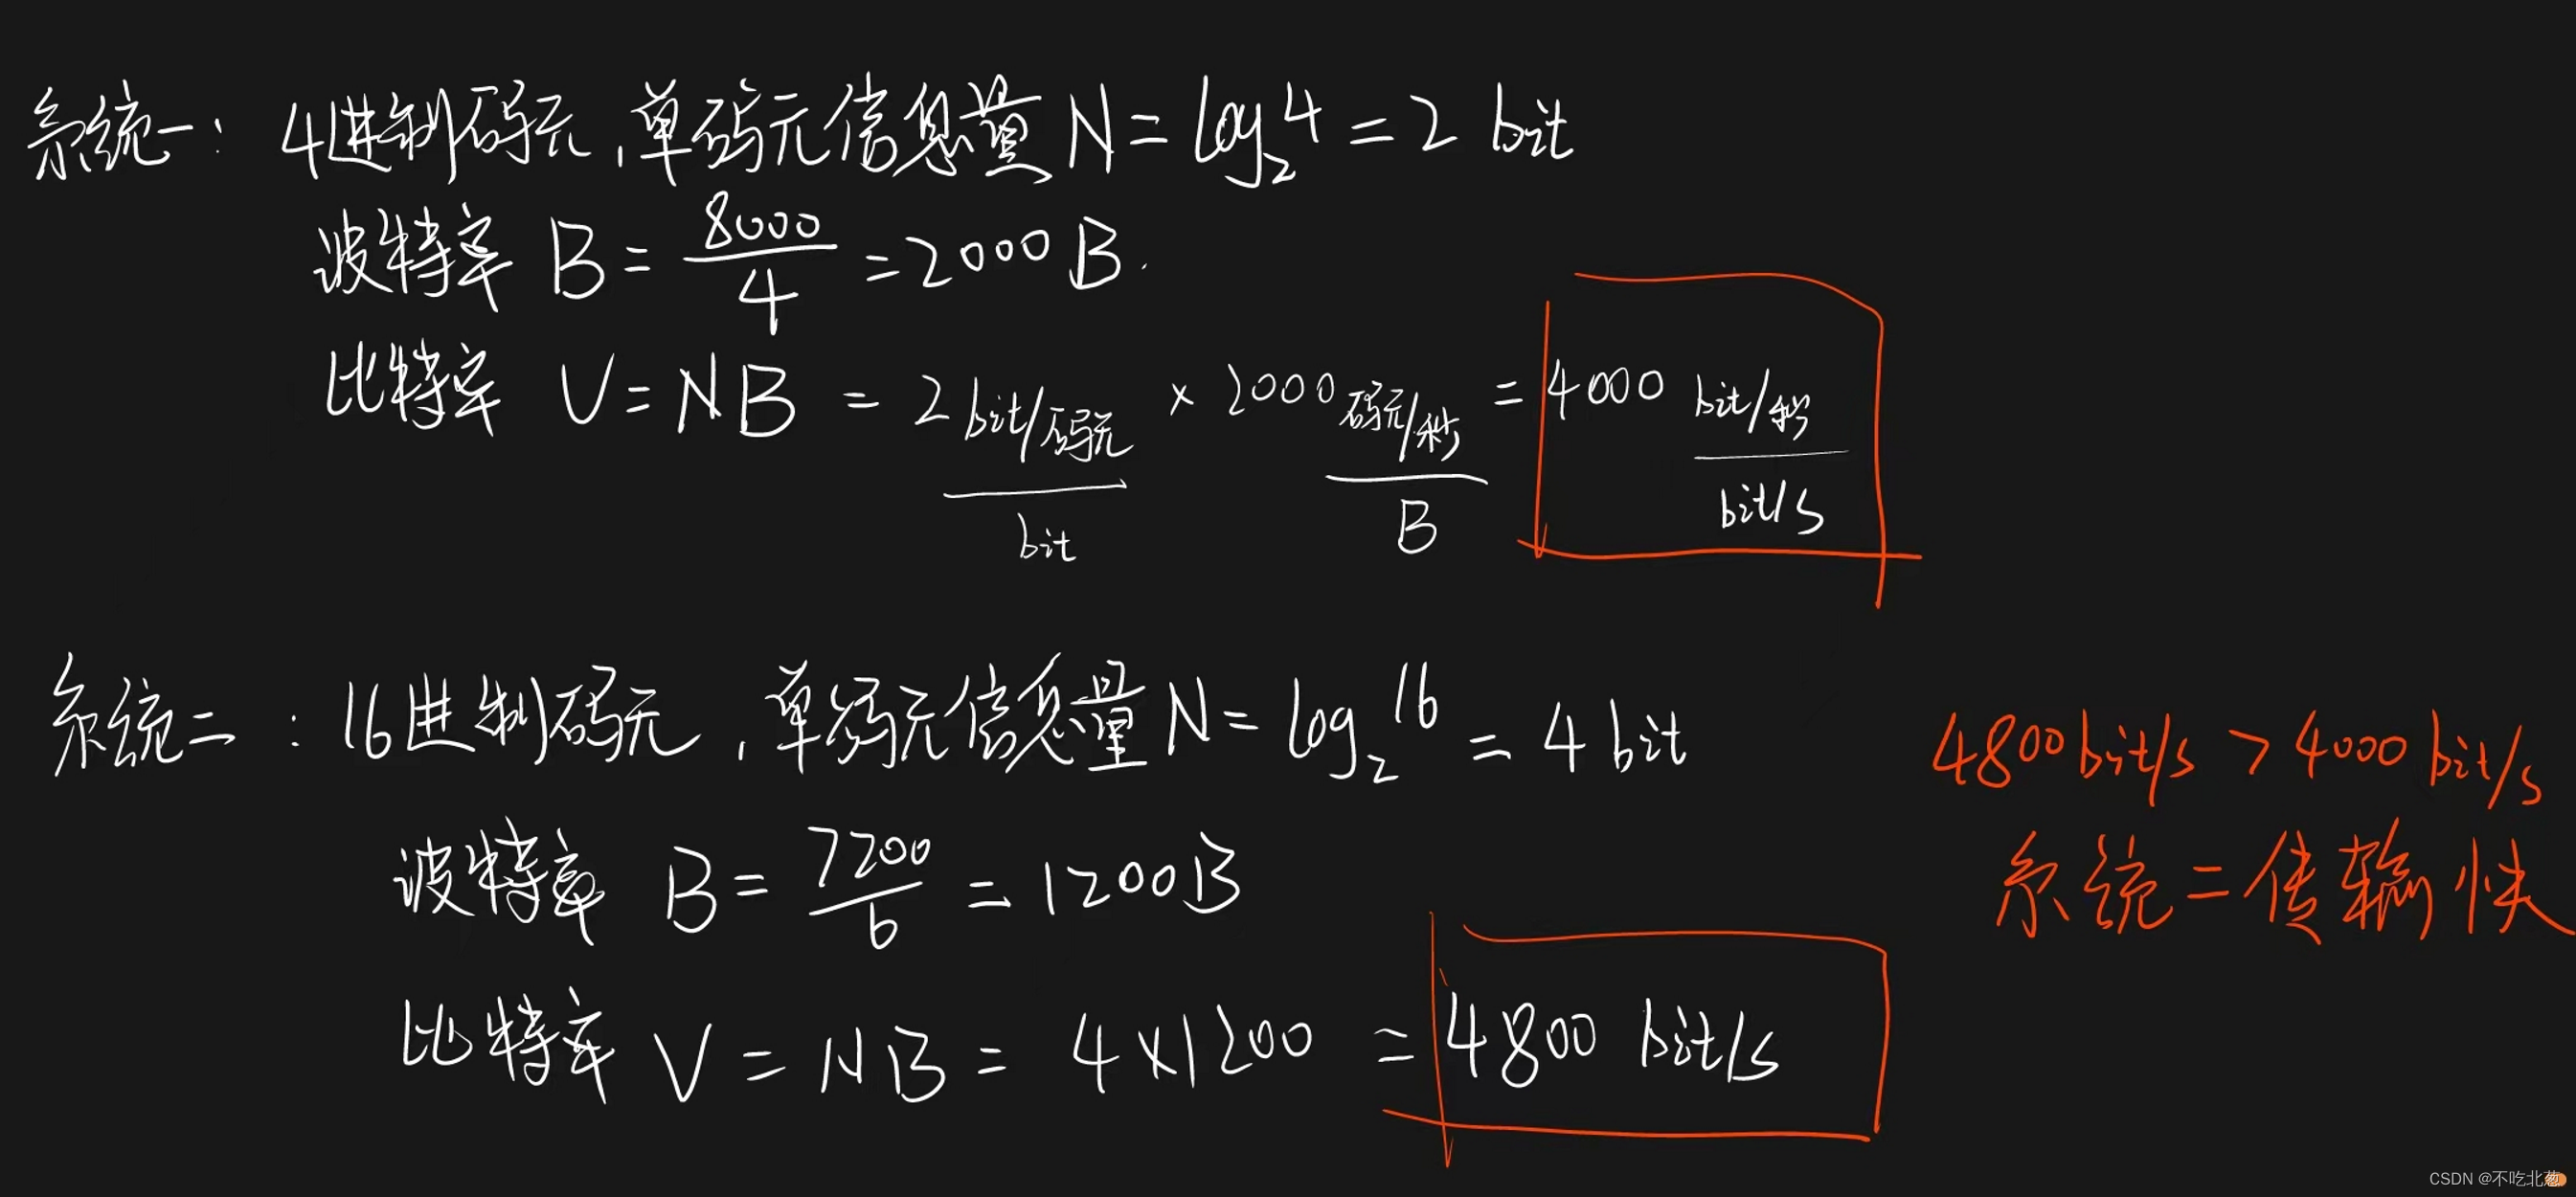 系统一: 4进制码元,单码元信息量 N = log₂4 = 2 bit
波特率 B = 8000/4 = 2000 B.
比特率 V = NB = 2 bit/码元 × 2000 码元/秒 = 4000 bit/秒
bit B bit/s
系统二: 16进制码元,单码元信息量 N = log₂16 = 4 bit
4800 bit/s > 4000 bit/s
波特率 B = 7200/6 = 1200B
系统二传输快
比特率 V = NB = 4×1200 = 4800 bit/s
CSDN @不吃北葱